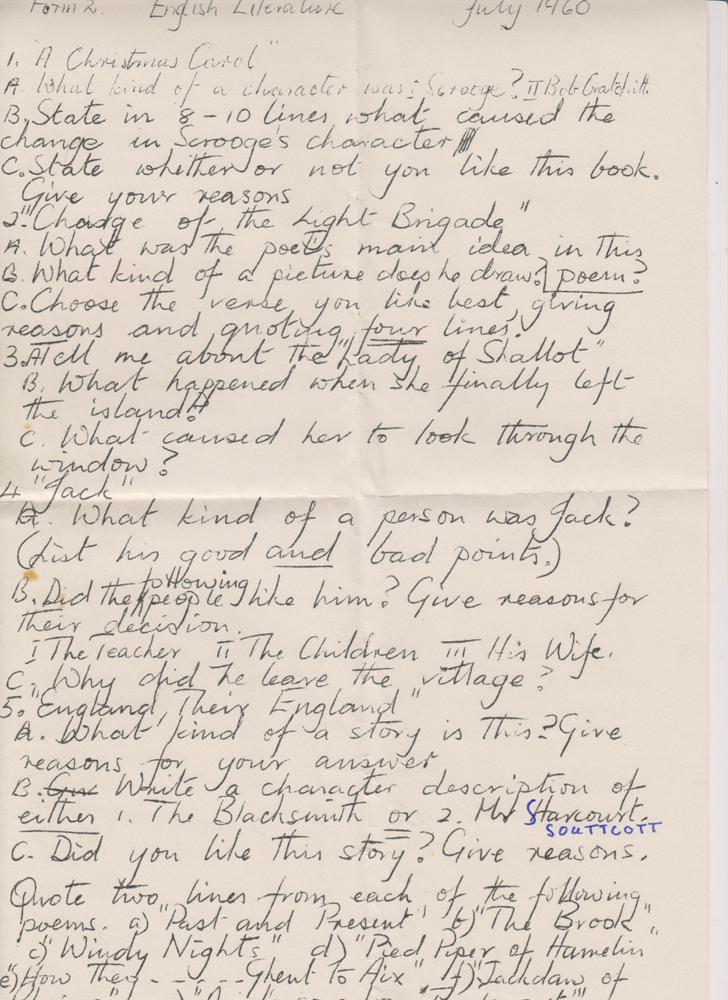 Form 2. English Literature July 1960
1. "A Christmas Carol"
A. What kind of a character was I Scrooge? II Bob Cratchitt.
B. State in 8-10 lines what caused the
change in Scrooge's character
C. State whether or not you like this book.
Give your reasons
2. "Charge of the Light Brigade"
A. What was the poet's main idea in this
B. What kind of a picture does he draw? poem?
C. Choose the verse you like best, giving
reasons and quoting four lines.
3. A Tell me about the "Lady of Shallot"
B. What happened when she finally left
the island?
C. What caused her to look through the
window?
4 "Jack"
A. What kind of a person was Jack?
(List his good and bad points.)
B. Did the following people like him? Give reasons for
their decision.
I The Teacher II The Children III His Wife.
C. Why did he leave the village?
5. "England, Their England"
A. What kind of a story is this? Give
reasons for your answer
B. Write a character description of
either 1. The Blacksmith or 2. Mr Harcourt.
SOUTTCOTT
C. Did you like this story? Give reasons.
Quote two lines from each of the following
poems. a) "Past and Present" b) "The Brook"
c) "Windy Nights" d) "Pied Piper of Hamelin"
e) How They - - - - - Ghent to Aix" f) "Jackdaw of